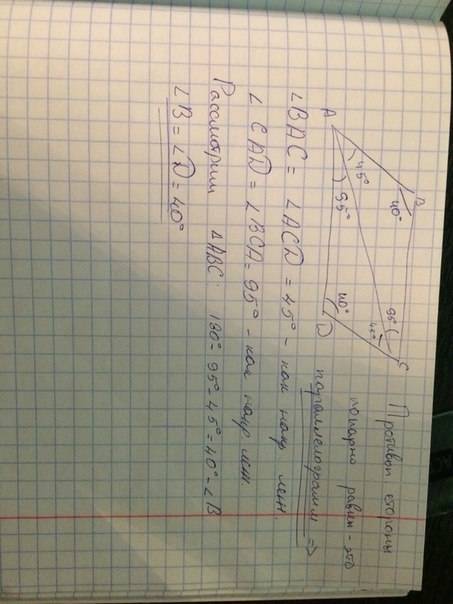 B
40°
95°
45°
C
A
45°
95°
40°
D
Противоп стороны
попарно равны - это
параллелограмм ⇒
∠BAC = ∠ACD = 45° - как накр леж.
∠CAD = ∠BCA = 95° - как накр леж.
Рассмотрим ΔABC: 180° - 95° - 45° = 40° - ∠B
∠B = ∠D = 40°